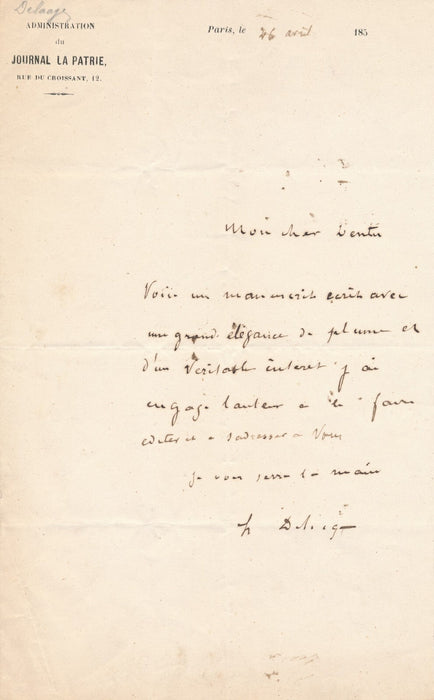 Delaage
ADMINISTRATION
du
JOURNAL LA PATRIE,
RUE DU CROISSANT, 12.
Paris, le 26 avril 185
Mon cher Dentu
Voici un manuscrit ecrit avec
une grande élégance de plume et
d'un veritable interet j'ai
engagé l'auteur a le faire
editer et a s'adresser a vous
je vous serre la main
h Delaage